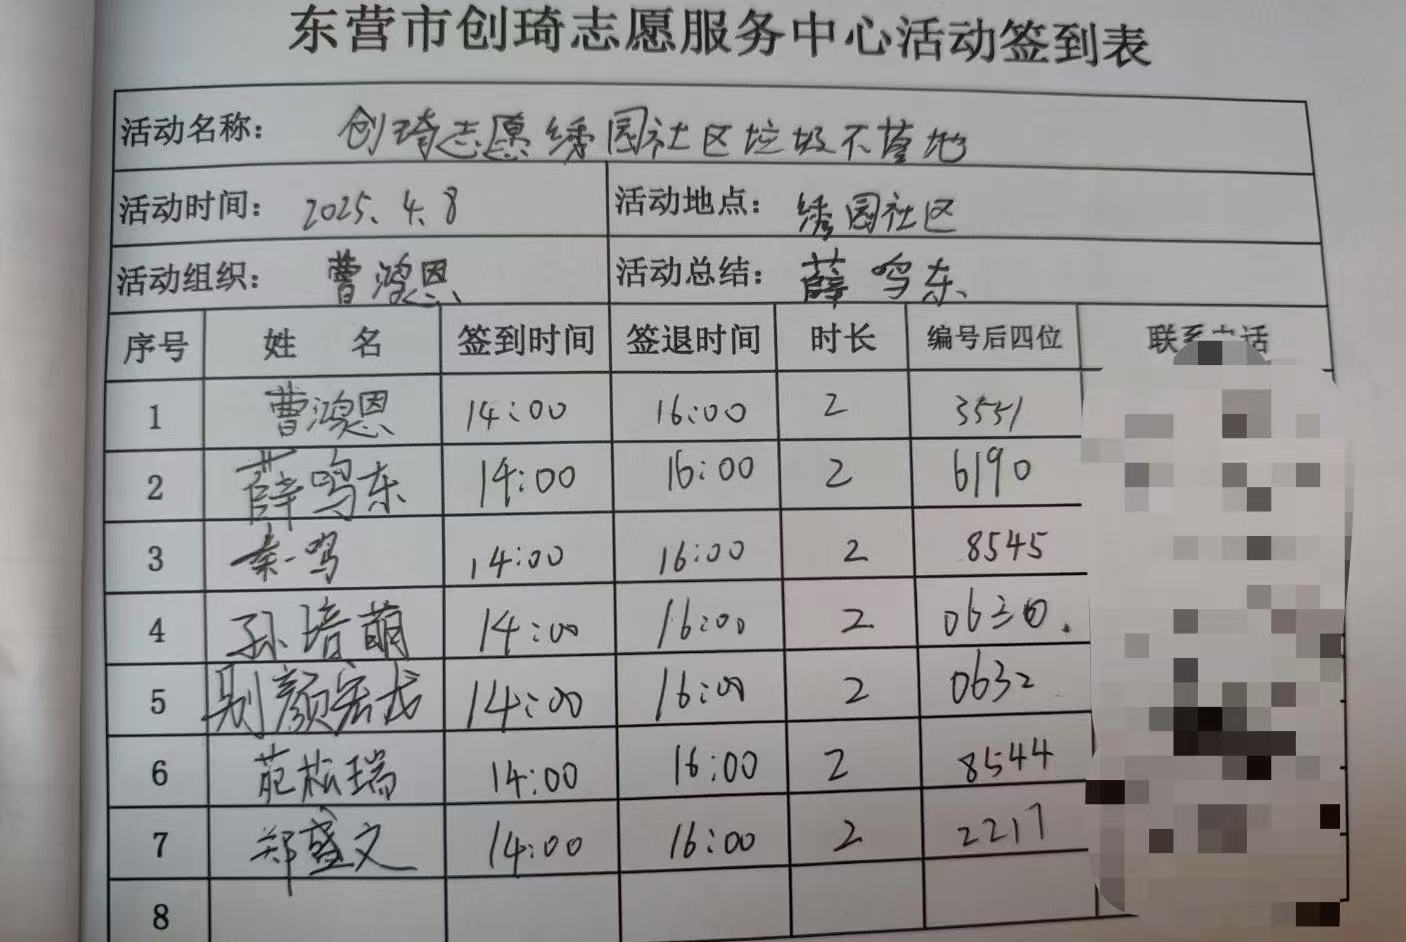 东营市创琦志愿服务中心活动签到表
活动名称： 创琦志愿绣园社区垃圾不落地
活动时间： 2025.4.8 活动地点： 绣园社区
活动组织： 曹鸿恩 活动总结： 薛鸣东
序号 姓 名 签到时间 签退时间 时长 编号后四位 联系电话
1 曹鸿恩 14:00 16:00 2 3551
2 薛鸣东 14:00 16:00 2 6190
3 秦一鸣 14:00 16:00 2 8545
4 孙培萌 14:00 16:00 2 0630.
5 14:00 16:00 2 0632
6 范松瑞 14:00 16:00 2 8544
7 郑盛文 14:00 16:00 2 2217
8